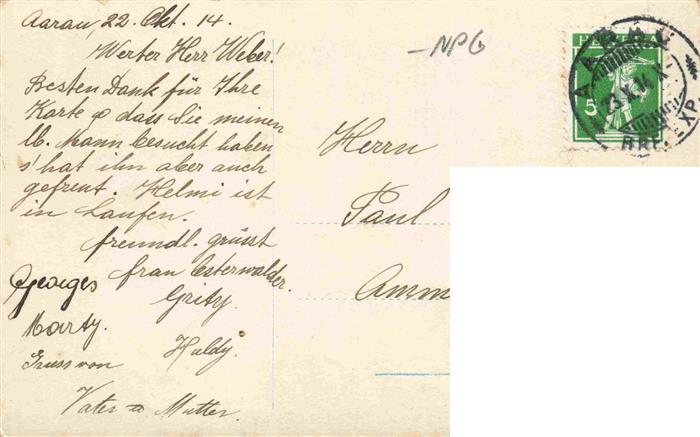 Aarau, 22. Okt. 14.
Werter Herr Weber!
Besten Dank für Ihre
Karte & dass Sie meinen
lb. Mann besucht haben
s'hat ihn aber auch
gefreut. Helmi ist
in Laufen.
freundl. grüsst
frau Osterwalder.
Georges
Grity.
Marty.
Huldy.
Gruss von
Vater & Mutter.
-NPG
Herrn
Paul
Amm
HELVETIA
5
AARAU
23.X.14.X-
BRF. EXP.